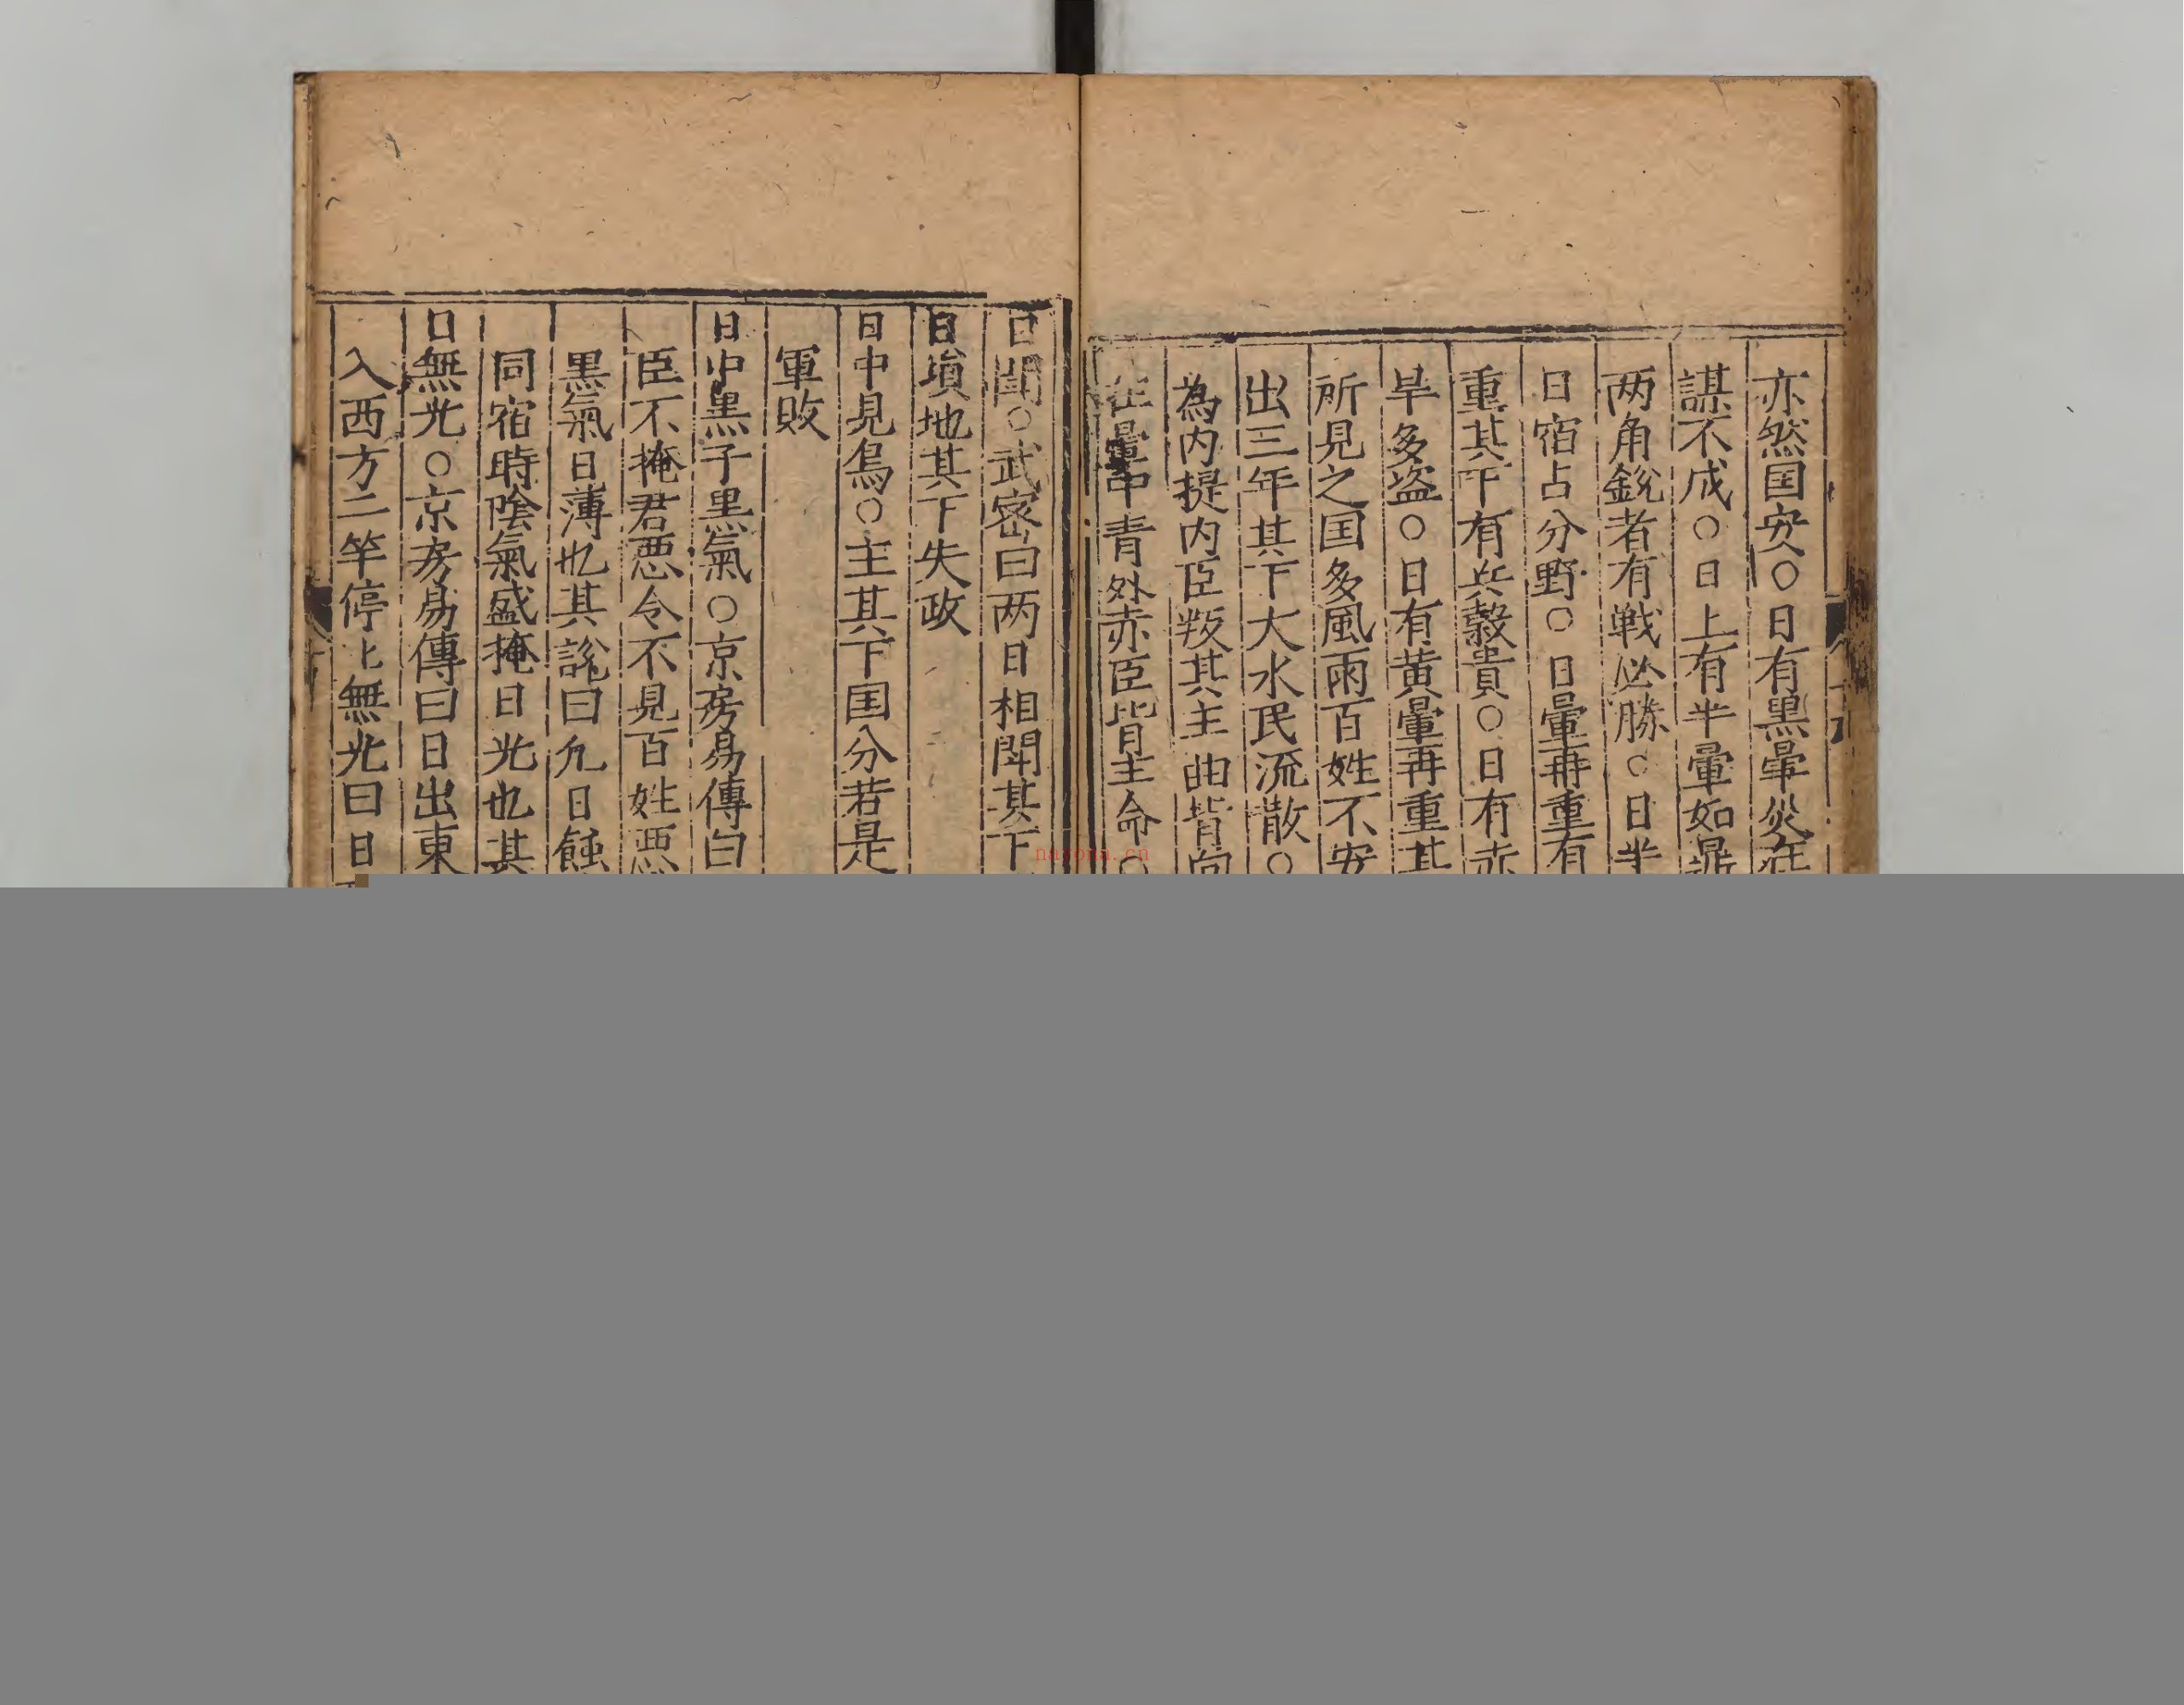 亦然国安○日有黒暈災在
謀不成○日上有半暈如鼎
两角銳者有戦必勝○日半
日宿占分野○日暈再重有
重其下有兵穀貴○日有赤
旱多盗○日有黄暈再重其
所見之国多風雨百姓不安
出三年其下大水民流散○
為内提内臣叛其主曲背向
在暈中青外赤臣背主命○
日鬪○武密曰两日相鬪其下
日墳地其下失政
日中見烏○主其下国分若是
軍敗
日中黒子黒氣○京房易傳曰
臣不掩君悪令不見百姓悪
黒氣日薄也其説曰凢日蝕
同宿時陰氣盛掩日光也其
日無光○京房易傳曰日出東
入西方二竿停上無光曰日
nayona.cn